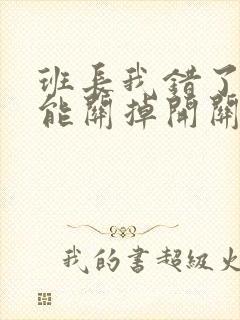 班长我错了
能關掉開關
我的書超級火